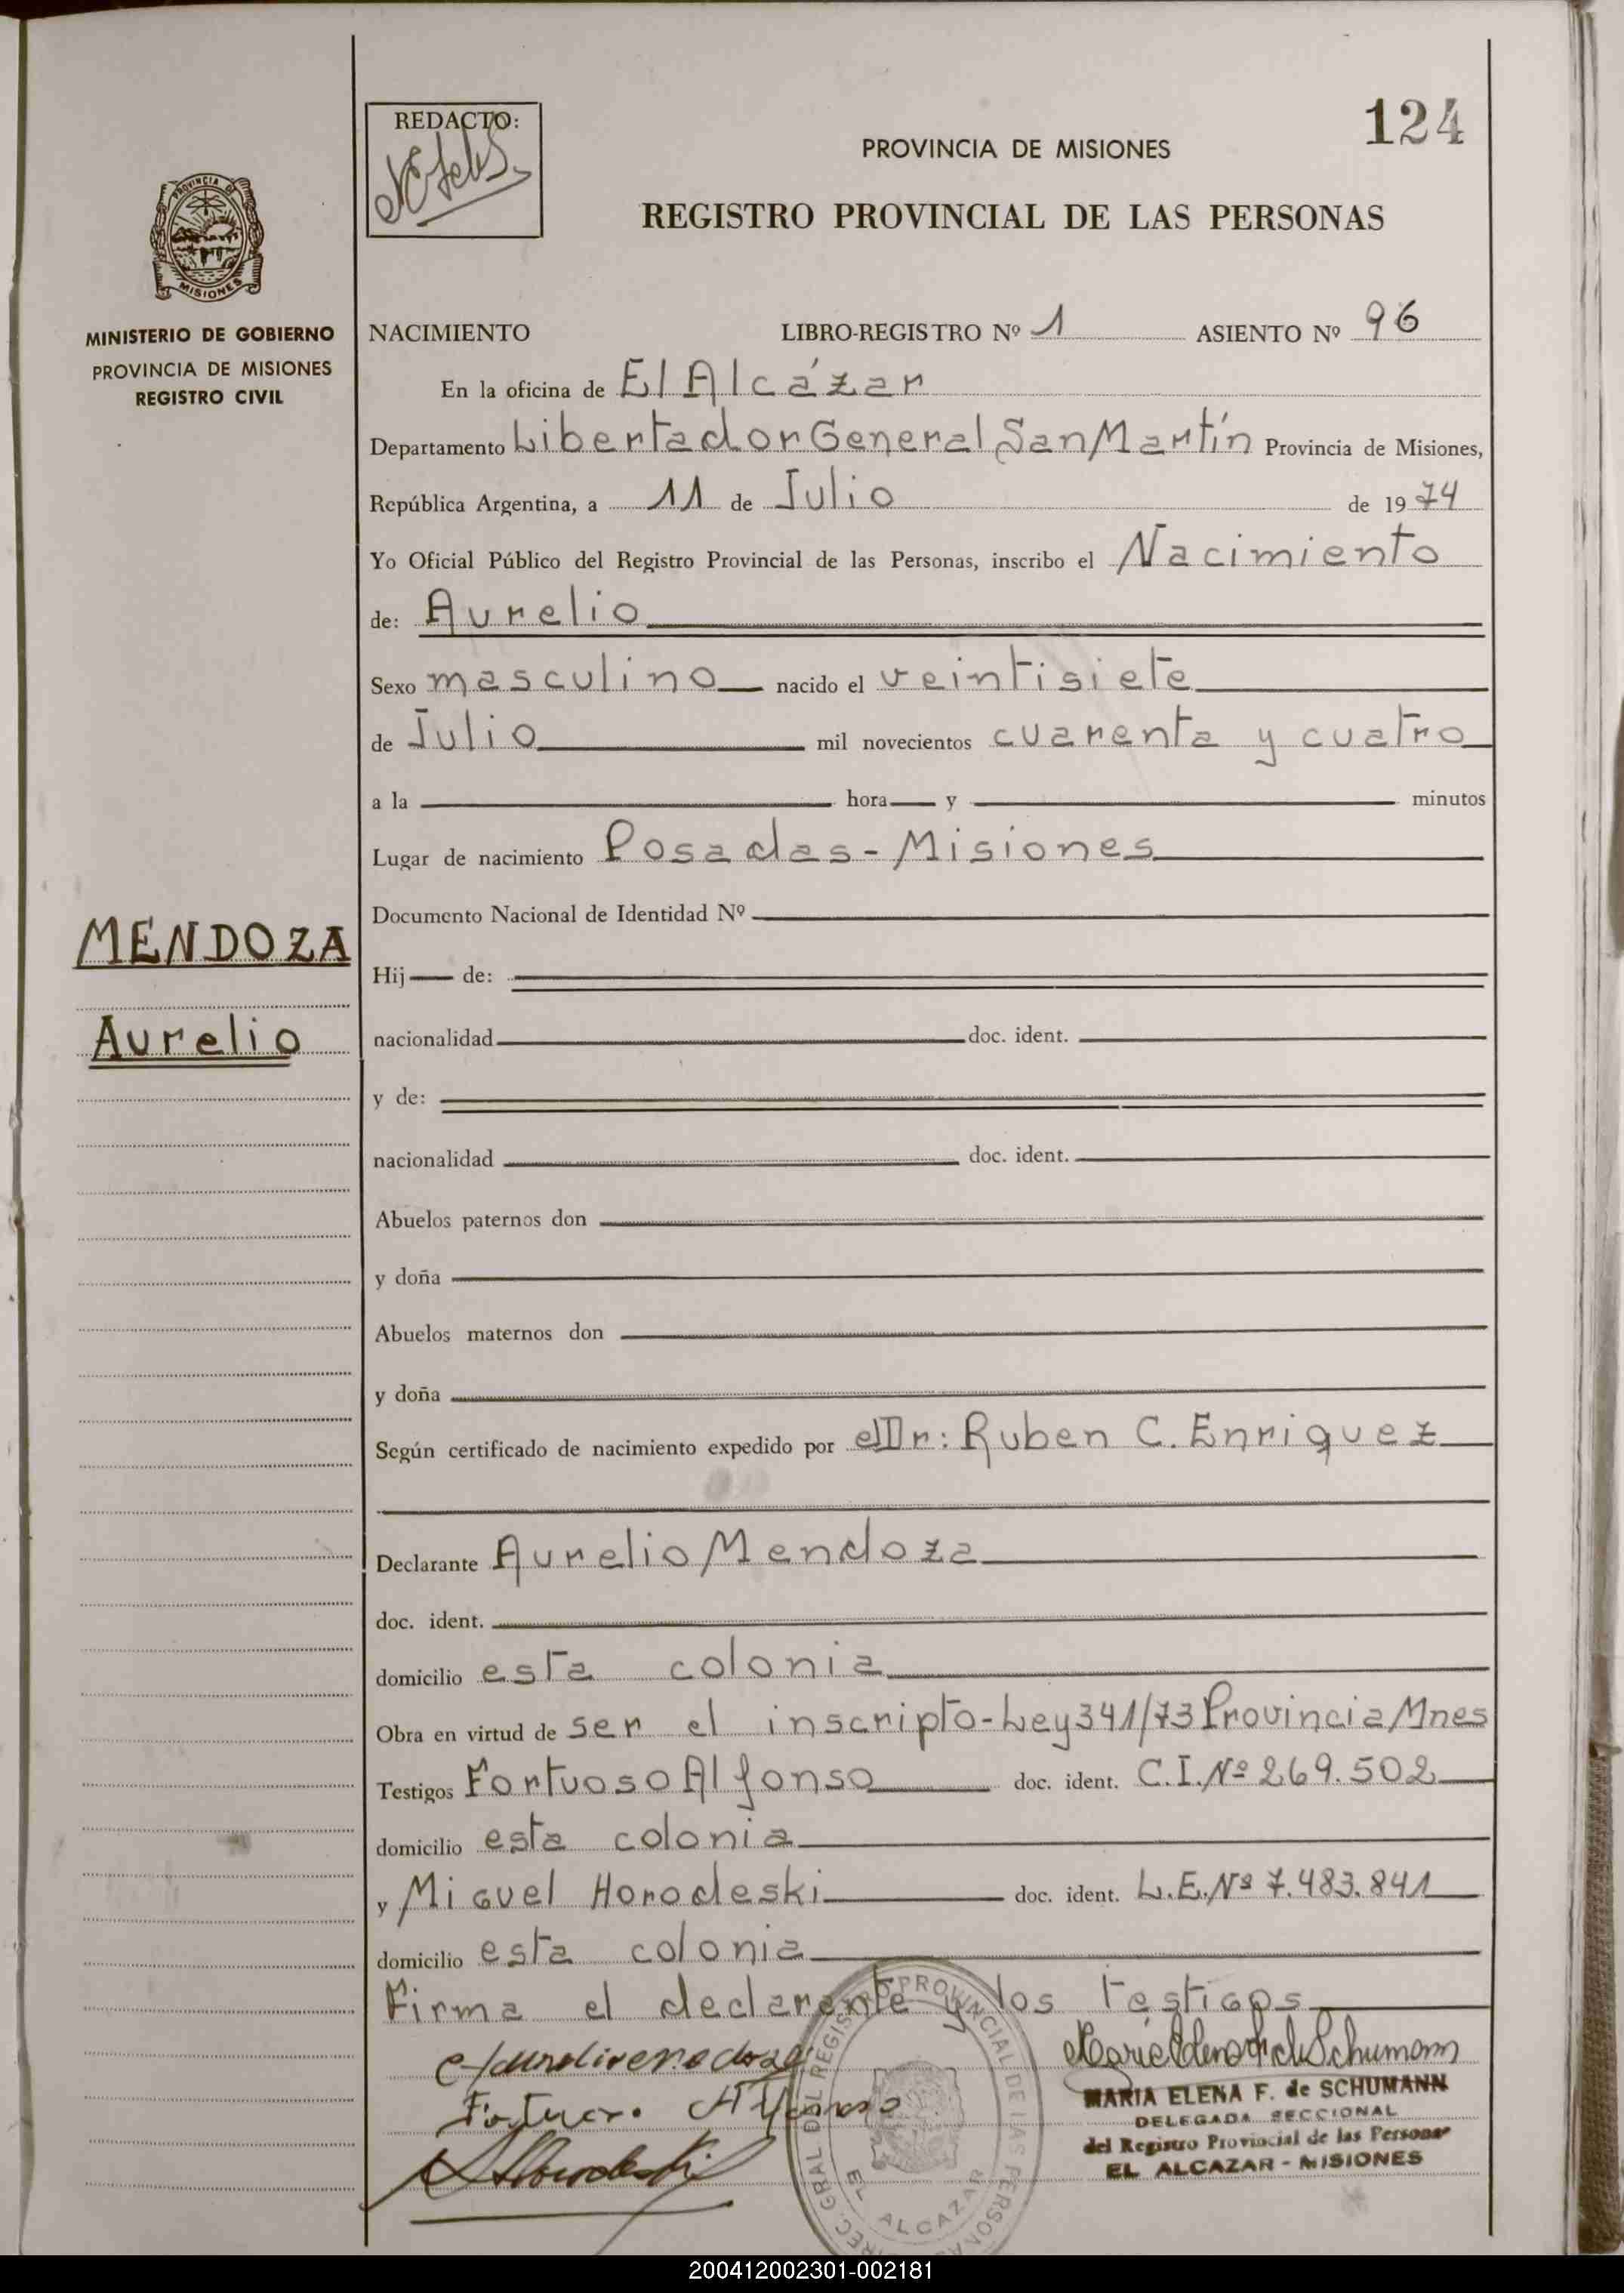 124
REDACTO:
PROVINCIA DE MISIONES
REGISTRO PROVINCIAL DE LAS PERSONAS
PROVINCIA DE
MISIONES
MINISTERIO DE GOBIERNO
PROVINCIA DE MISIONES
REGISTRO CIVIL
NACIMIENTO LIBRO-REGISTRO Nº 1 ASIENTO Nº 96
En la oficina de El Alcázar
Departamento Libertador General San Martín Provincia de Misiones,
República Argentina, a 11 de Julio de 1974
Yo Oficial Público del Registro Provincial de las Personas, inscribo el Nacimiento
de: Aurelio
Sexo masculino nacido el veintisiete
de Julio mil novecientos cuarenta y cuatro
a la hora y minutos
Lugar de nacimiento Posadas - Misiones
Documento Nacional de Identidad Nº
MENDOZA
Hij de:
Aurelio
nacionalidad doc. ident.
y de:
nacionalidad doc. ident.
Abuelos paternos don
y doña
Abuelos maternos don
y doña
Según certificado de nacimiento expedido por el Dr: Ruben C. Enriquez
Declarante Aurelio Mendoza
doc. ident.
domicilio esta colonia
Obra en virtud de ser el inscripto - Ley 341/73 Provincia Mnes
Testigos Fortuoso Alfonso doc. ident. C.I. Nº 269.502
domicilio esta colonia
y Miguel Horodeski doc. ident. L.E. Nº 7.483.841
domicilio esta colonia
Firma el declarante y los testigos
Maria Elena F. de Schumann
MARIA ELENA F. de SCHUMANN
DELEGADA SECCIONAL
del Registro Provincial de las Personas
EL ALCAZAR - MISIONES
DIREC. GRAL DEL REGISTRO PROVINCIAL DE LAS PERSONAS
EL ALCAZAR
200412002301-002181